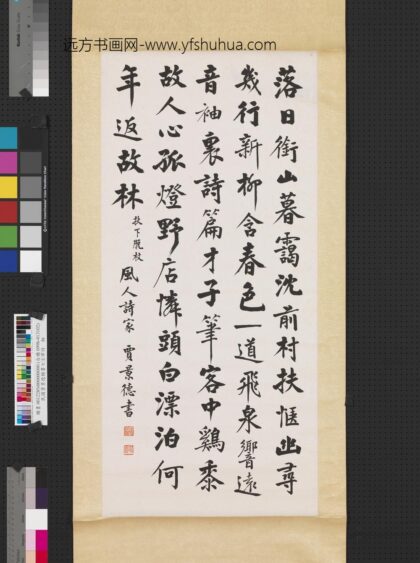 远方书画网-www.yfshuhua.com
落日銜山暮靄沈前村扶愜幽尋
幾行新柳含春色一道飛泉響遠
音袖裏詩篇才子筆客中鷄黍
故人心孤燈野店憐頭白漂泊何
年返故林
扶下脫杖
風人詩家 賈景德書